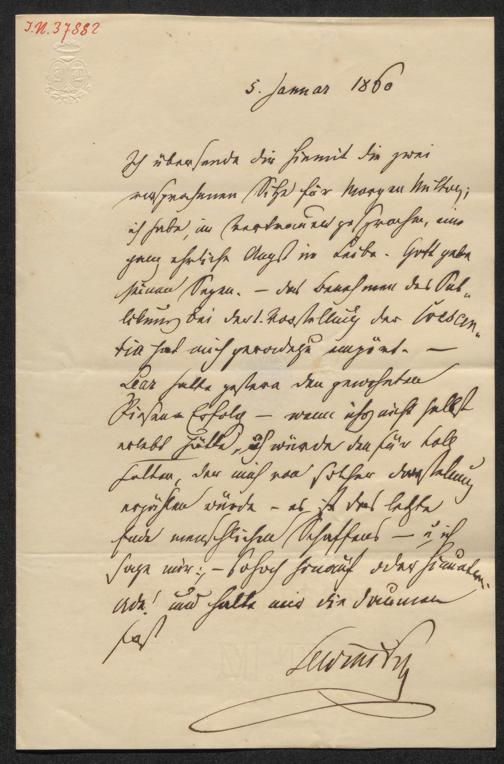 J.N. 37882
5. Januar 1860
Ich übersende dir hiemit die zwei
versprochenen Sitze für Morgen Mittag;
ich habe im Vertrauen gesprochen, eine
ganz ehrliche Angst im Leibe. Gott gebe
seinen Segen. — das Benehmen des Pub-
likums bei der 1. Vorstellung der
hat mich geradezu empört. —
Lear hatte gestern den gewohnten
Riesen Erfolg — wenn ichs nicht selbst
erlebt hätte, ich würde den für toll
halten, der mich von solcher Darstellung
erzählen würde — es ist das letzte
Ende menschlichen Schaffens — u ich
sage mir: — hinauf oder
Ade! und halte mir die Daumen
fest
Lewinsky